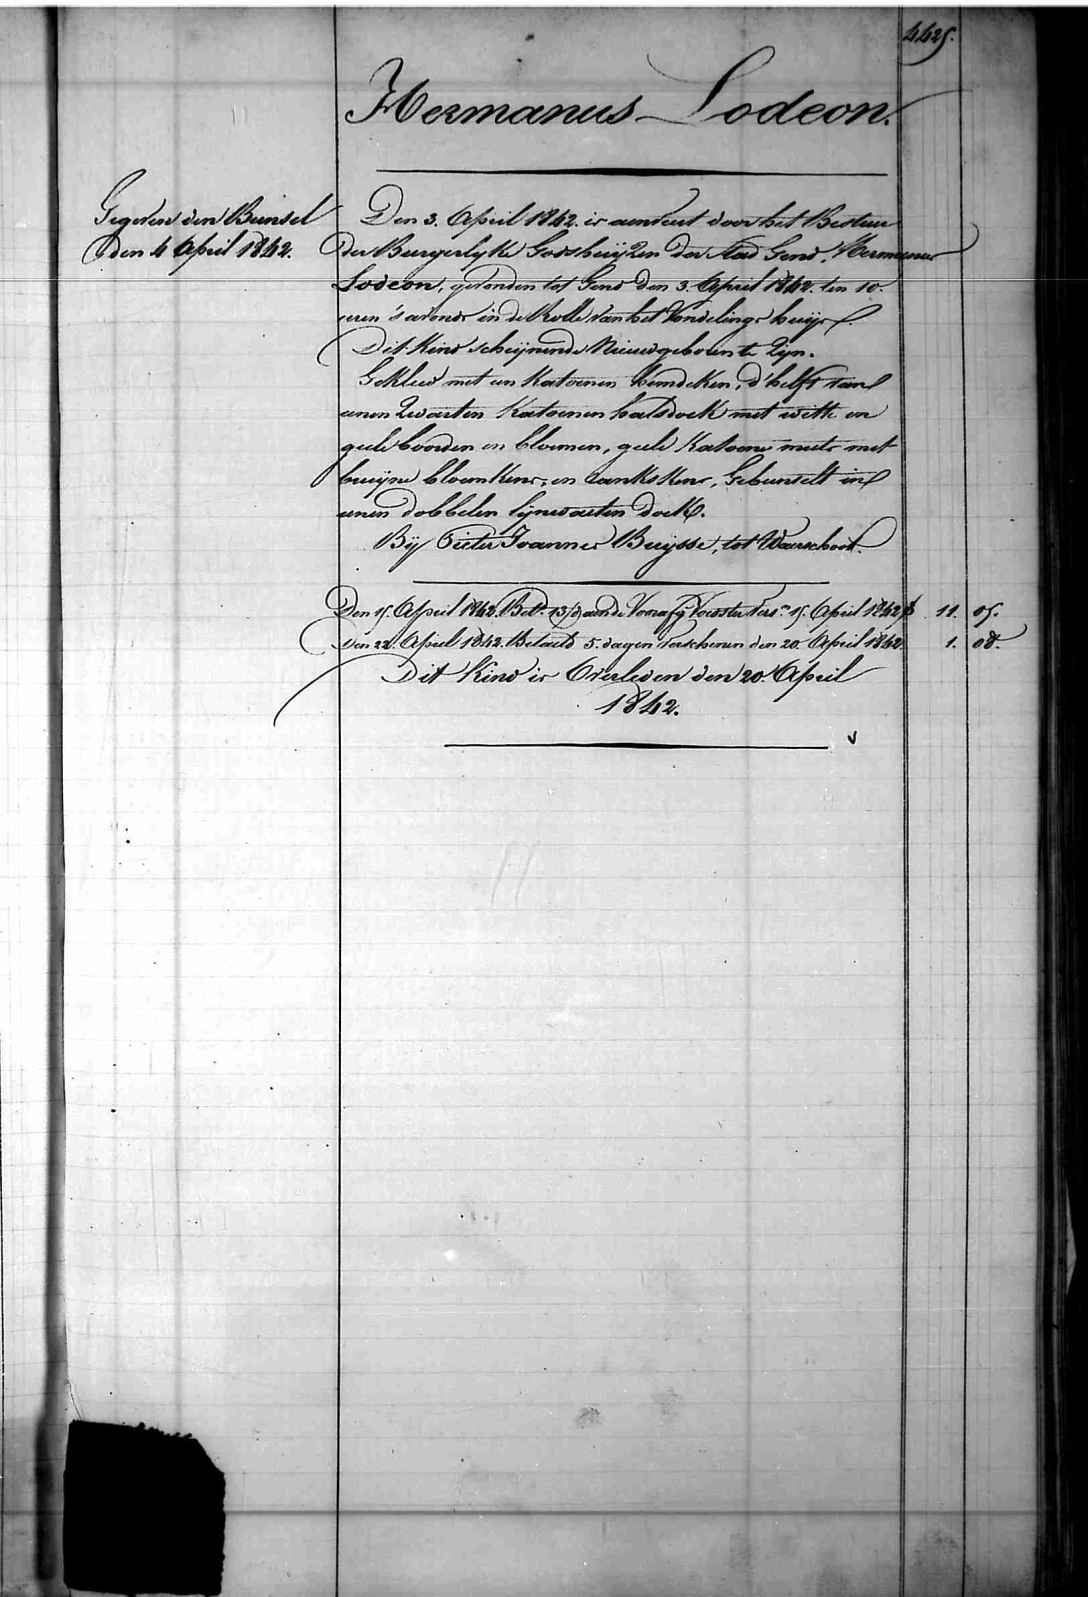 4425.
Hermanus Lodeon.
Gegeven den Bunsel
den 4 April 1842.
Den 3. April 1842. is aenveert door het Bestuur
der Burgerlyke Godshuijzen der Stad Gend, Hermanus
Lodeon, gevonden tot Gend den 3. April 1842. ten 10.
uren 's avonds in de Rolle van het Vondelings huijs.
Dit Kind scheijnende Nieuwgeboren te Zijn.
Gekleed met een Katoenen hemdeken, d'helft van
eenen Zwarten Katoenen halsdoek met witte en
geele boorden en bloemen, geele Katoene muts met
bruijne bloemkens, en tankskens, Gebunselt in
eenen dobbelen lijnwaeten doek.
Bij Pieter Joannes Buijsse, tot Waerschoot.
Den 15. April 1842. Bet. 13/d aende Voorafg Voedster Vers. 15. April 1842 11. 05.
Den 22. April 1842. Betaeld 5. dagen verschenen den 20. April 1842. 1. 08.
Dit Kind is Overleden den 20. April
1842.